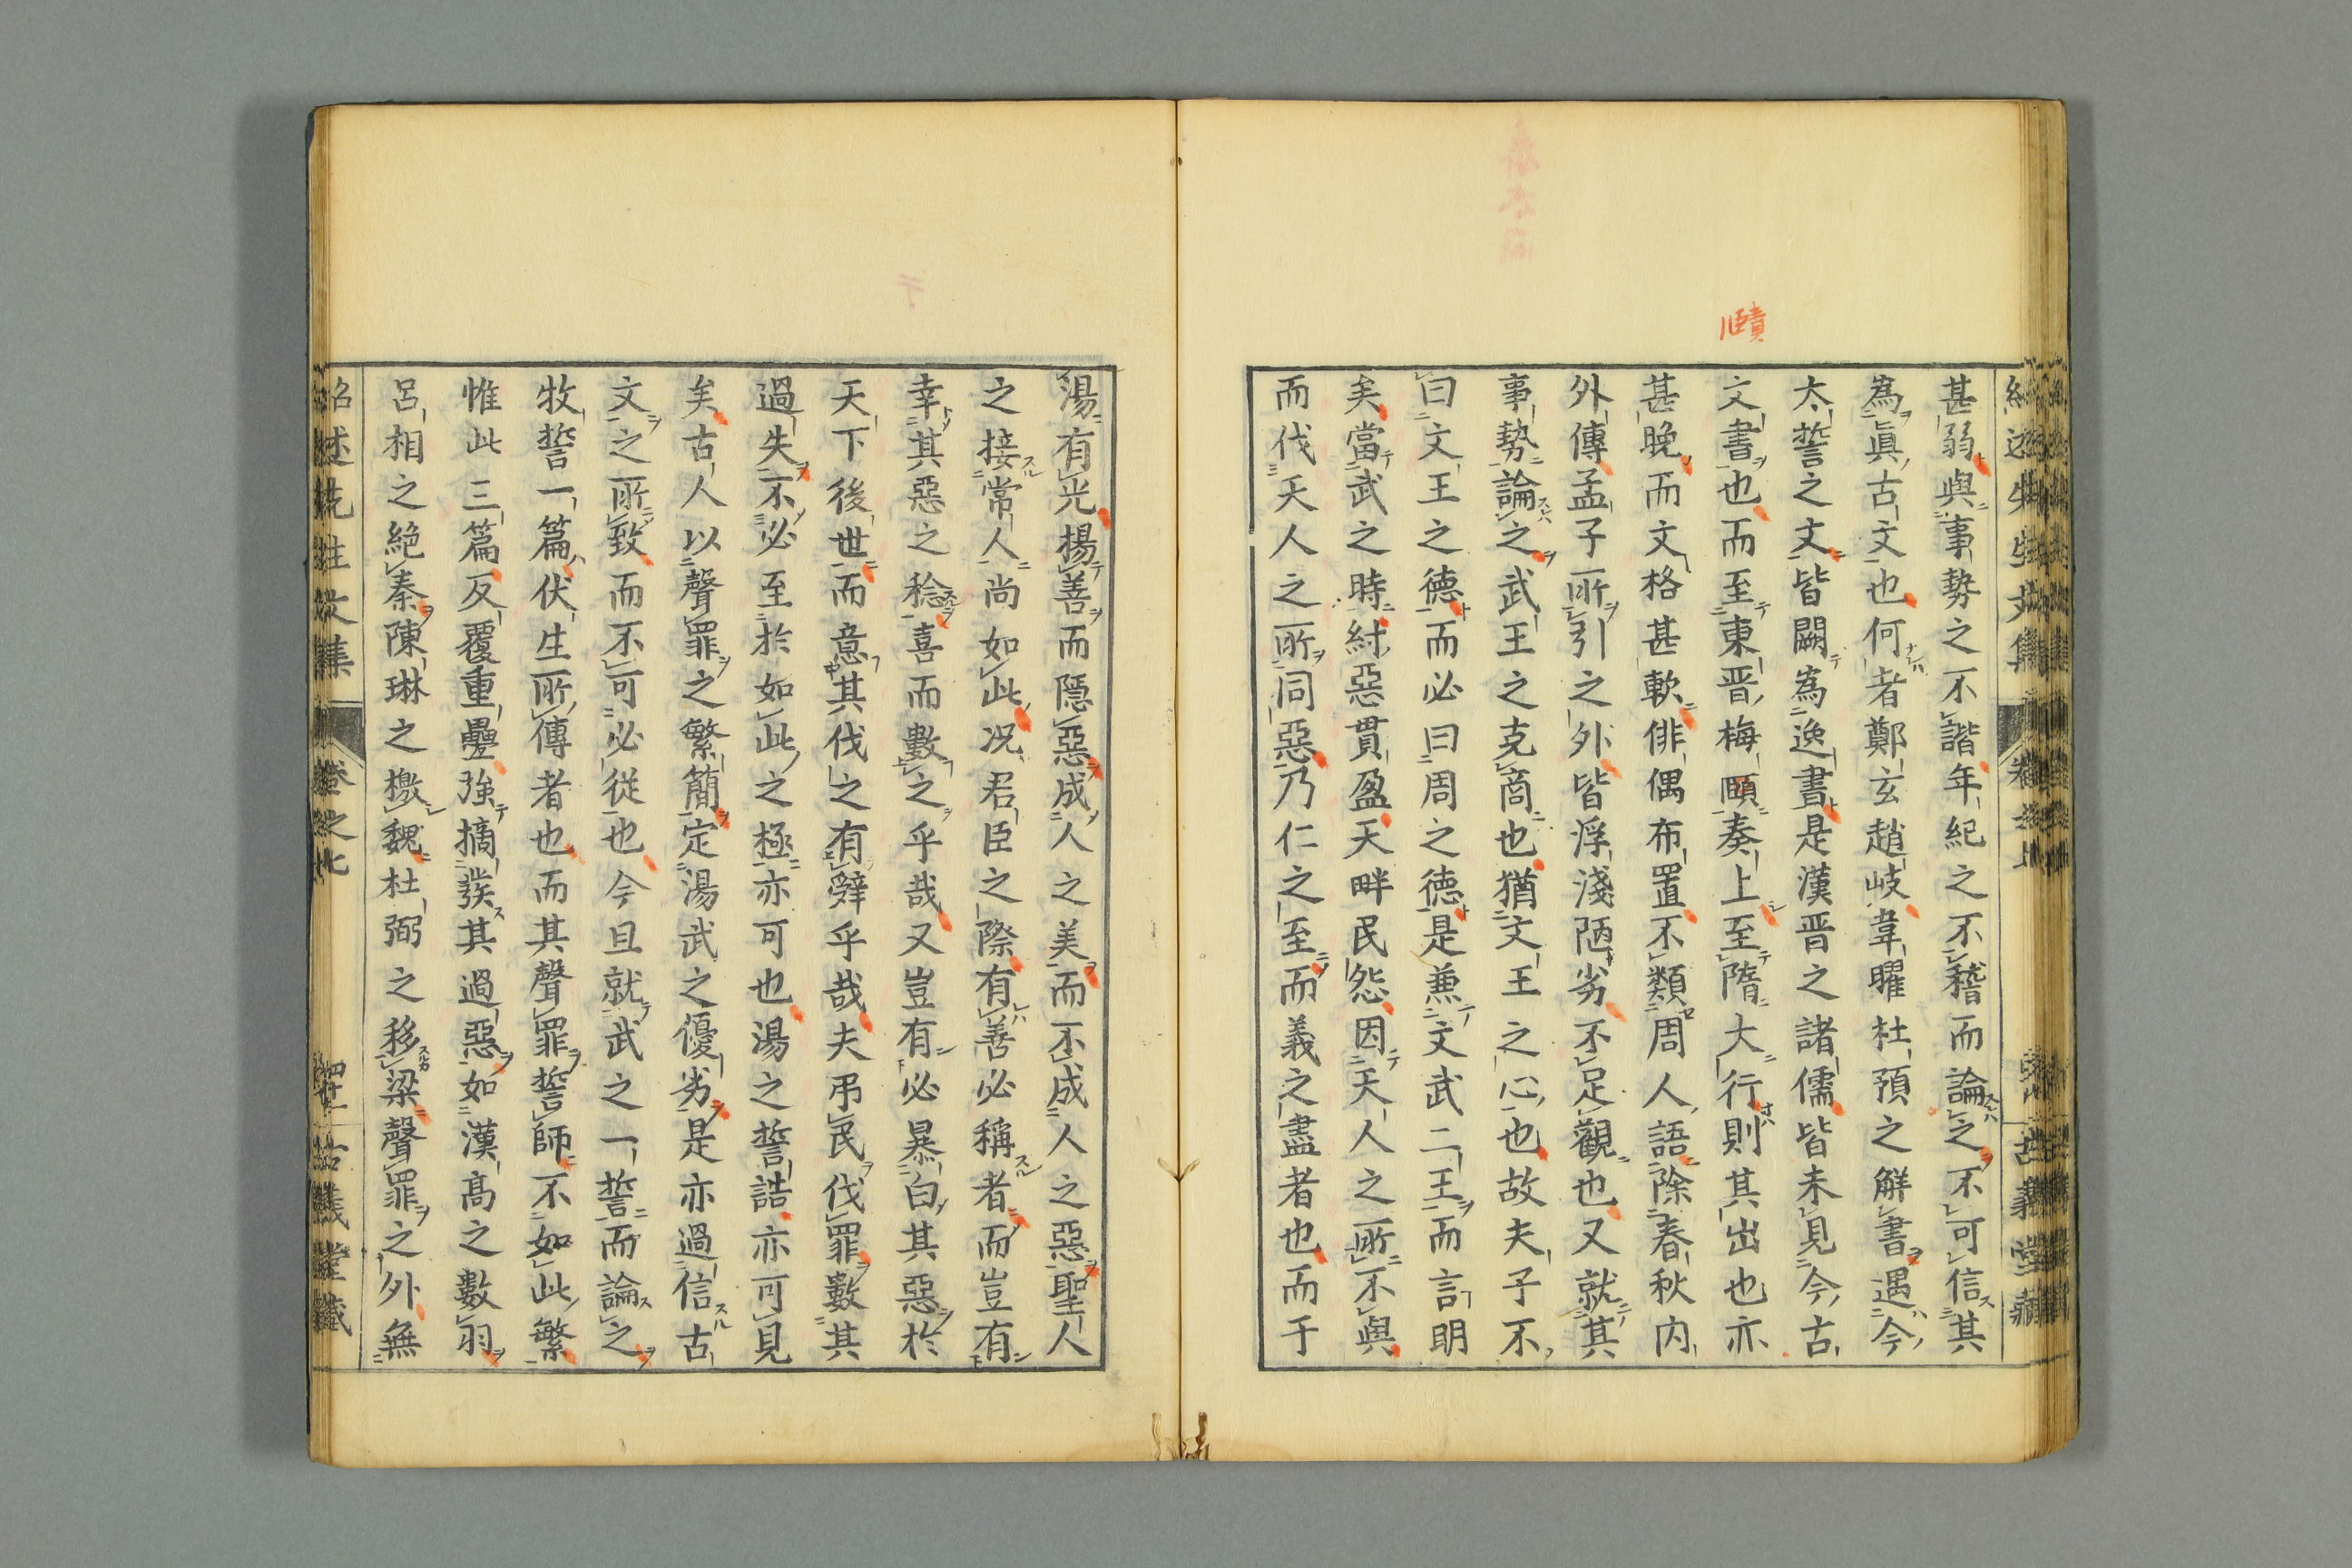 賾
甚弱與事勢之不諧年紀之不稽而論之不可信其
為眞古文也何者鄭玄趙岐韋曜杜預之解書遇今
太誓之文皆闕為逸書是漢晋之諸儒皆未見今古
文書也而至東晋梅頤奏上至隋大行則其出也亦
甚晚而文格甚軟俳偶布置不類周人語除春秋内
外傳孟子所引之外皆浮淺陋劣不足觀也又就其
事勢論之武王之克商也猶文王之心也故夫子不
曰文王之德而必曰周之德是兼文武二王而言明
矣當武之時紂惡貫盈天畔民怨因天人之所不與
而伐天人之所同惡乃仁之至而義之盡者也而于
湯有光揚善而隱惡成人之美而不成人之惡聖人
之接常人尚如此况君臣之際有善必稱者而豈有
幸其惡之稔喜而數之乎哉又豈有必暴白其惡於
天下後世而意其伐之有辤乎哉夫弔民伐罪數其
過失不必至於如此之極亦可也湯之誓誥亦可見
矣古人以聲罪之繁簡定湯武之優劣是亦過信古
文之所致而不可必從也今且就武之一誓而論之
牧誓一篇伏生所傳者也而其聲罪誓師不如此繁
惟此三篇反覆重疊強摘發其過惡如漢高之數羽
呂相之絶秦陳琳之檄魏杜弼之移梁聲罪之外無
紹述先生文集 卷之七 古義堂藏